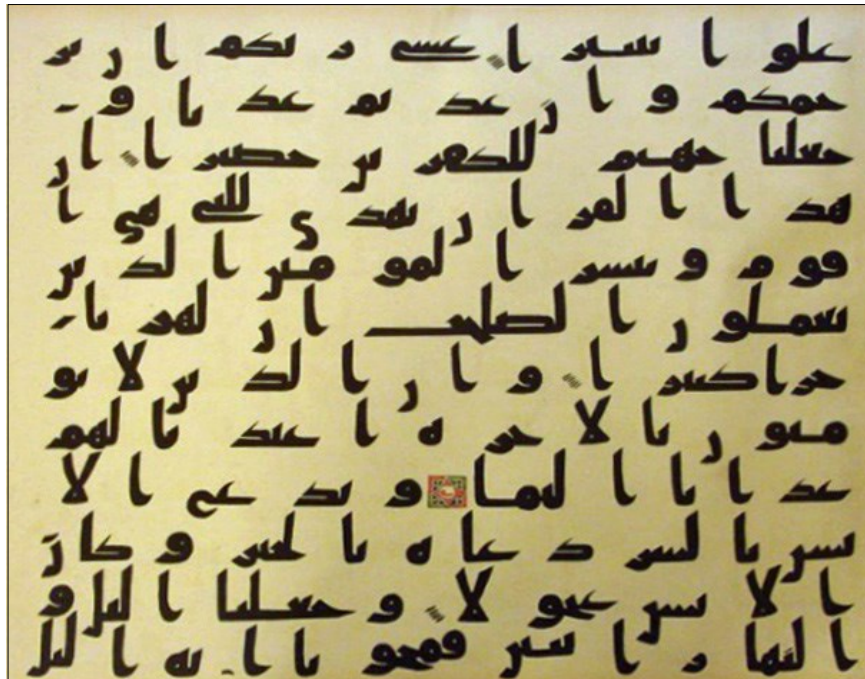 علوا تتبيرا عسى ربكم ان ير
حمكم وان عدتم عدنا و
جعلنا جهنم للكفرين حصيرا ان
هذا القران يهدي للتي هي ا
قوم ويبشر المومنين الذين
يعملون الصلحت ان لهم ا
جرا كبيرا وان الذين لا يو
منون بالاخره اعتدنا لهم
عذابا اليما ويدع الا
نسن بالشر دعاه بالخير وكان
الانسن عجولا وجعلنا اليل و
النهار ايتين فمحونا ايه اليل